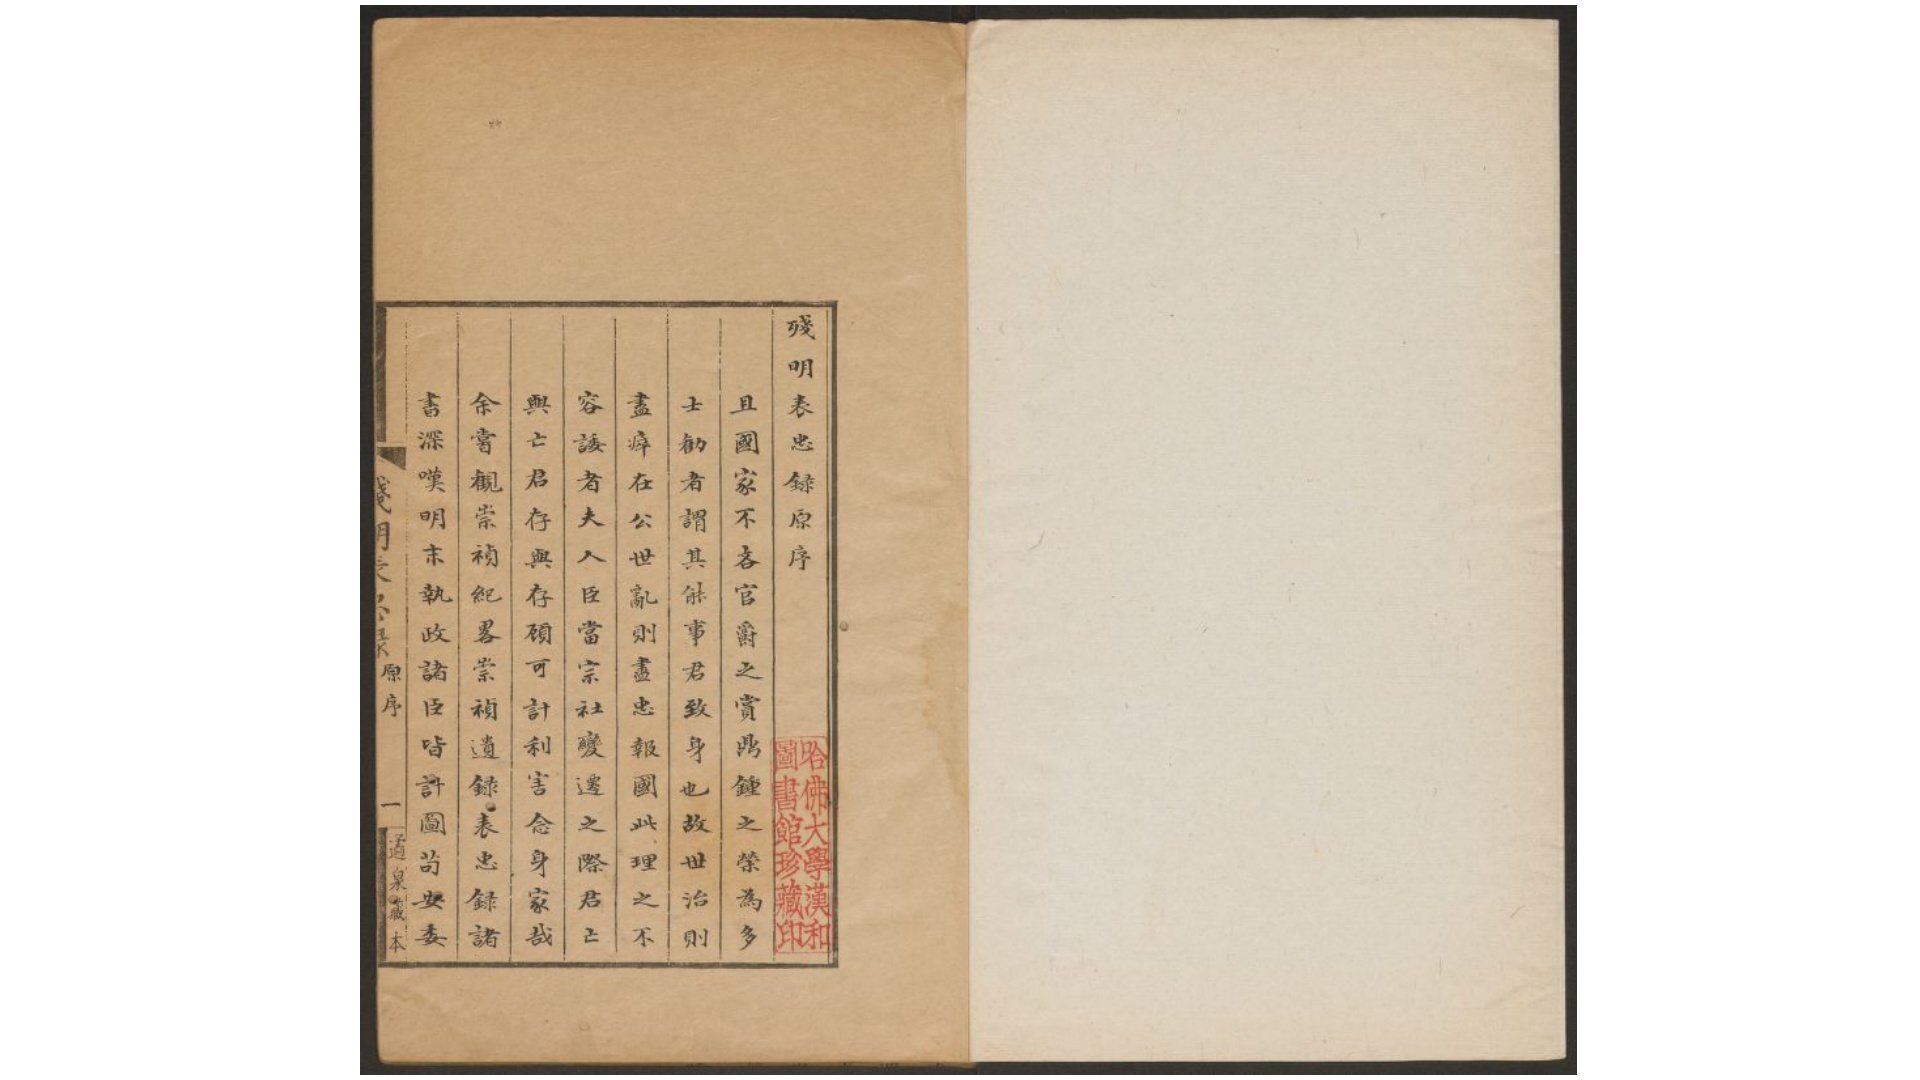 殘明表忠録原序
且國家不吝官爵之賞鼎鍾之榮為多
士勸者謂其能事君致身也故世治則
盡瘁在公世亂則盡忠報國此理之不
容諉者夫人臣當宗社變遷之際君亡
與亡君存與存頋可計利害念身家哉
余嘗觀崇禎紀畧崇禎遺録表忠録諸
書深嘆明末執政諸臣皆計圖苟安委
殘明表忠录
原序
一
泉藏本
哈佛大學漢和
圖書館珍藏印